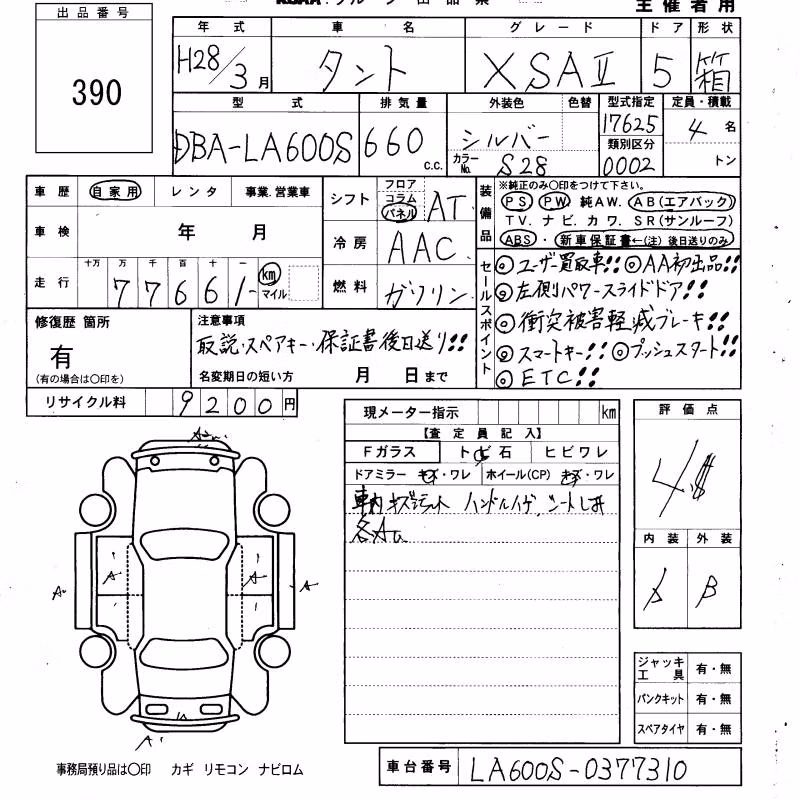 出品番号
主催者用
390
年式 車名 グレード ドア 形状
H28/3月 タント XSAⅡ 5 箱
型式 排気量 外装色 色替 型式指定 定員・積載
DBA-LA600S 660 c.c. シルバー 17625 4名
類別区分
カラーNo. S28 0002 トン
車歴 自家用 レンタ 事業.営業車
シフト フロア コラム パネル AT
装備品 ※純正のみ〇印をつけて下さい。
PS PW 純AW. AB(エアバック)
TV. ナビ. カワ. SR(サンルーフ)
ABS・新車保証書←(注)後日送りのみ
車検 年 月
冷房 AAC
走行 十万 万 千 百 十 一
77661 km マイル
燃料 ガソリン
セールスポイント
◎ユーザー買取車!! ◎AA初出品!!
◎左側パワースライドドア!!
◎衝突被害軽減ブレーキ!!
◎スマートキー!! ◎プッシュスタート!!
◎ETC!!
修復歴 箇所
有
(有の場合は〇印を)
注意事項
取説・スペアキー・保証書後日送り!!
名変期日の短い方 月 日まで
リサイクル料 9200円
現メーター指示 km
【査定員記入】
Fガラス トビ石 ヒビワレ
ドアミラー キズ・ワレ ホイール(CP) キズ・ワレ
車内キズ ハンドルハゲ, シートしみ
各A
評価点
4
内装 外装
B
A A A A A
ジャッキ工具 有・無
パンクキット 有・無
スペアタイヤ 有・無
事務局預り品は〇印 カギ リモコン ナビロム
車台番号 LA600S-0377310